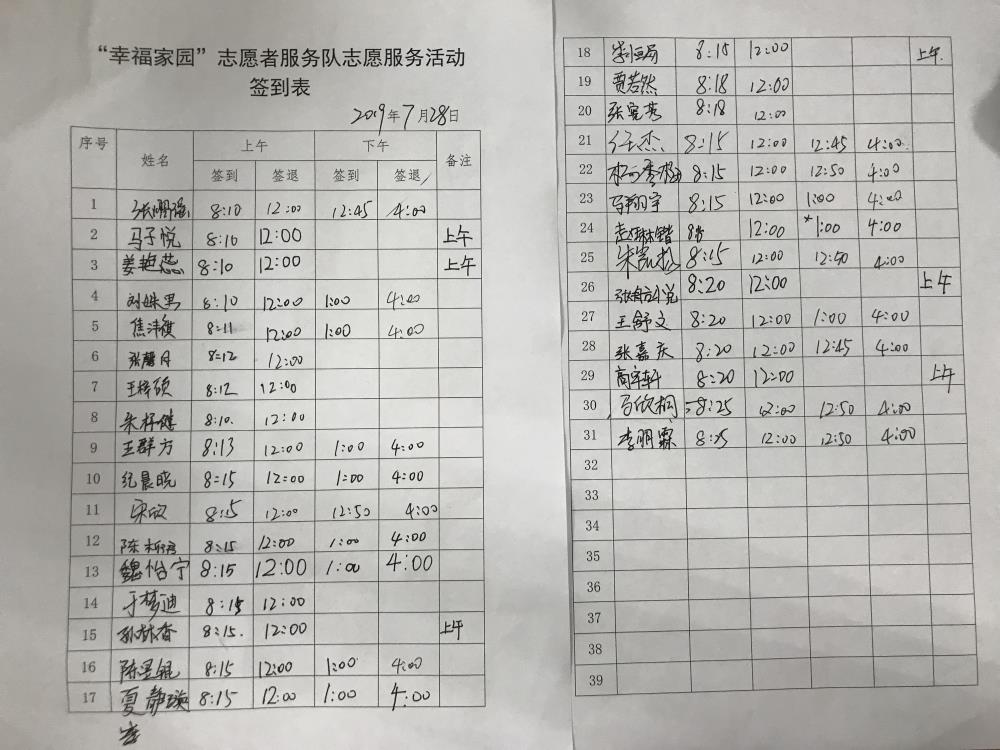 “幸福家园”志愿者服务队志愿服务活动
签到表
2019年7月28日
序号 姓名 上午 下午 备注
签到 签退 签到 签退
1 8:10 12:00 12:45 4:00
2 马子悦 8:10 12:00 上午
3 姜艳蕊 8:10 12:00 上午
4 刘姝男 8:10 12:00 1:00 4:00
5 焦沛祺 8:11 12:00 1:00 4:00
6 张馨月 8:12 12:00
7 王梓硕 8:12 12:00
8 朱梓健 8:10. 12:00
9 王群方 8:13 12:00 1:00 4:00
10 纪晨晓 8:15 12:00 1:00 4:00
11 宋欣 8:15 12:00 12:50 4:00
12 陈 8:15 12:00 1:00 4:00
13 魏怡宁 8:15 12:00 1:00 4:00
14 于梦迪 8:15 12:00
15 孙林香 8:15. 12:00 上午
16 陈昱锟 8:15 12:00 1:00 4:00
17 夏静 8:15 12:00 1:00 4:00
18 8:15 12:00 上午
19 贾若然 8:18 12:00
20 张 8:18 12:00
21 任杰 8:15 12:00 12:45 4:00
22 8:15 12:00 12:50 4:00
23 马翔宇 8:15 12:00 1:00 4:00
24 12:00 1:00 4:00
25 朱凯松 8:15 12:00 12:50 4:00
26 8:20 12:00 上午
27 王舒文 8:20 12:00 1:00 4:00
28 张嘉庆 8:20 12:00 12:45 4:00
29 商宇轩 8:20 12:00 上午
30 马欣桐 8:25 12:00 12:50 4:00
31 李明霖 8:25 12:00 12:50 4:00
32
33
34
35
36
37
38
39